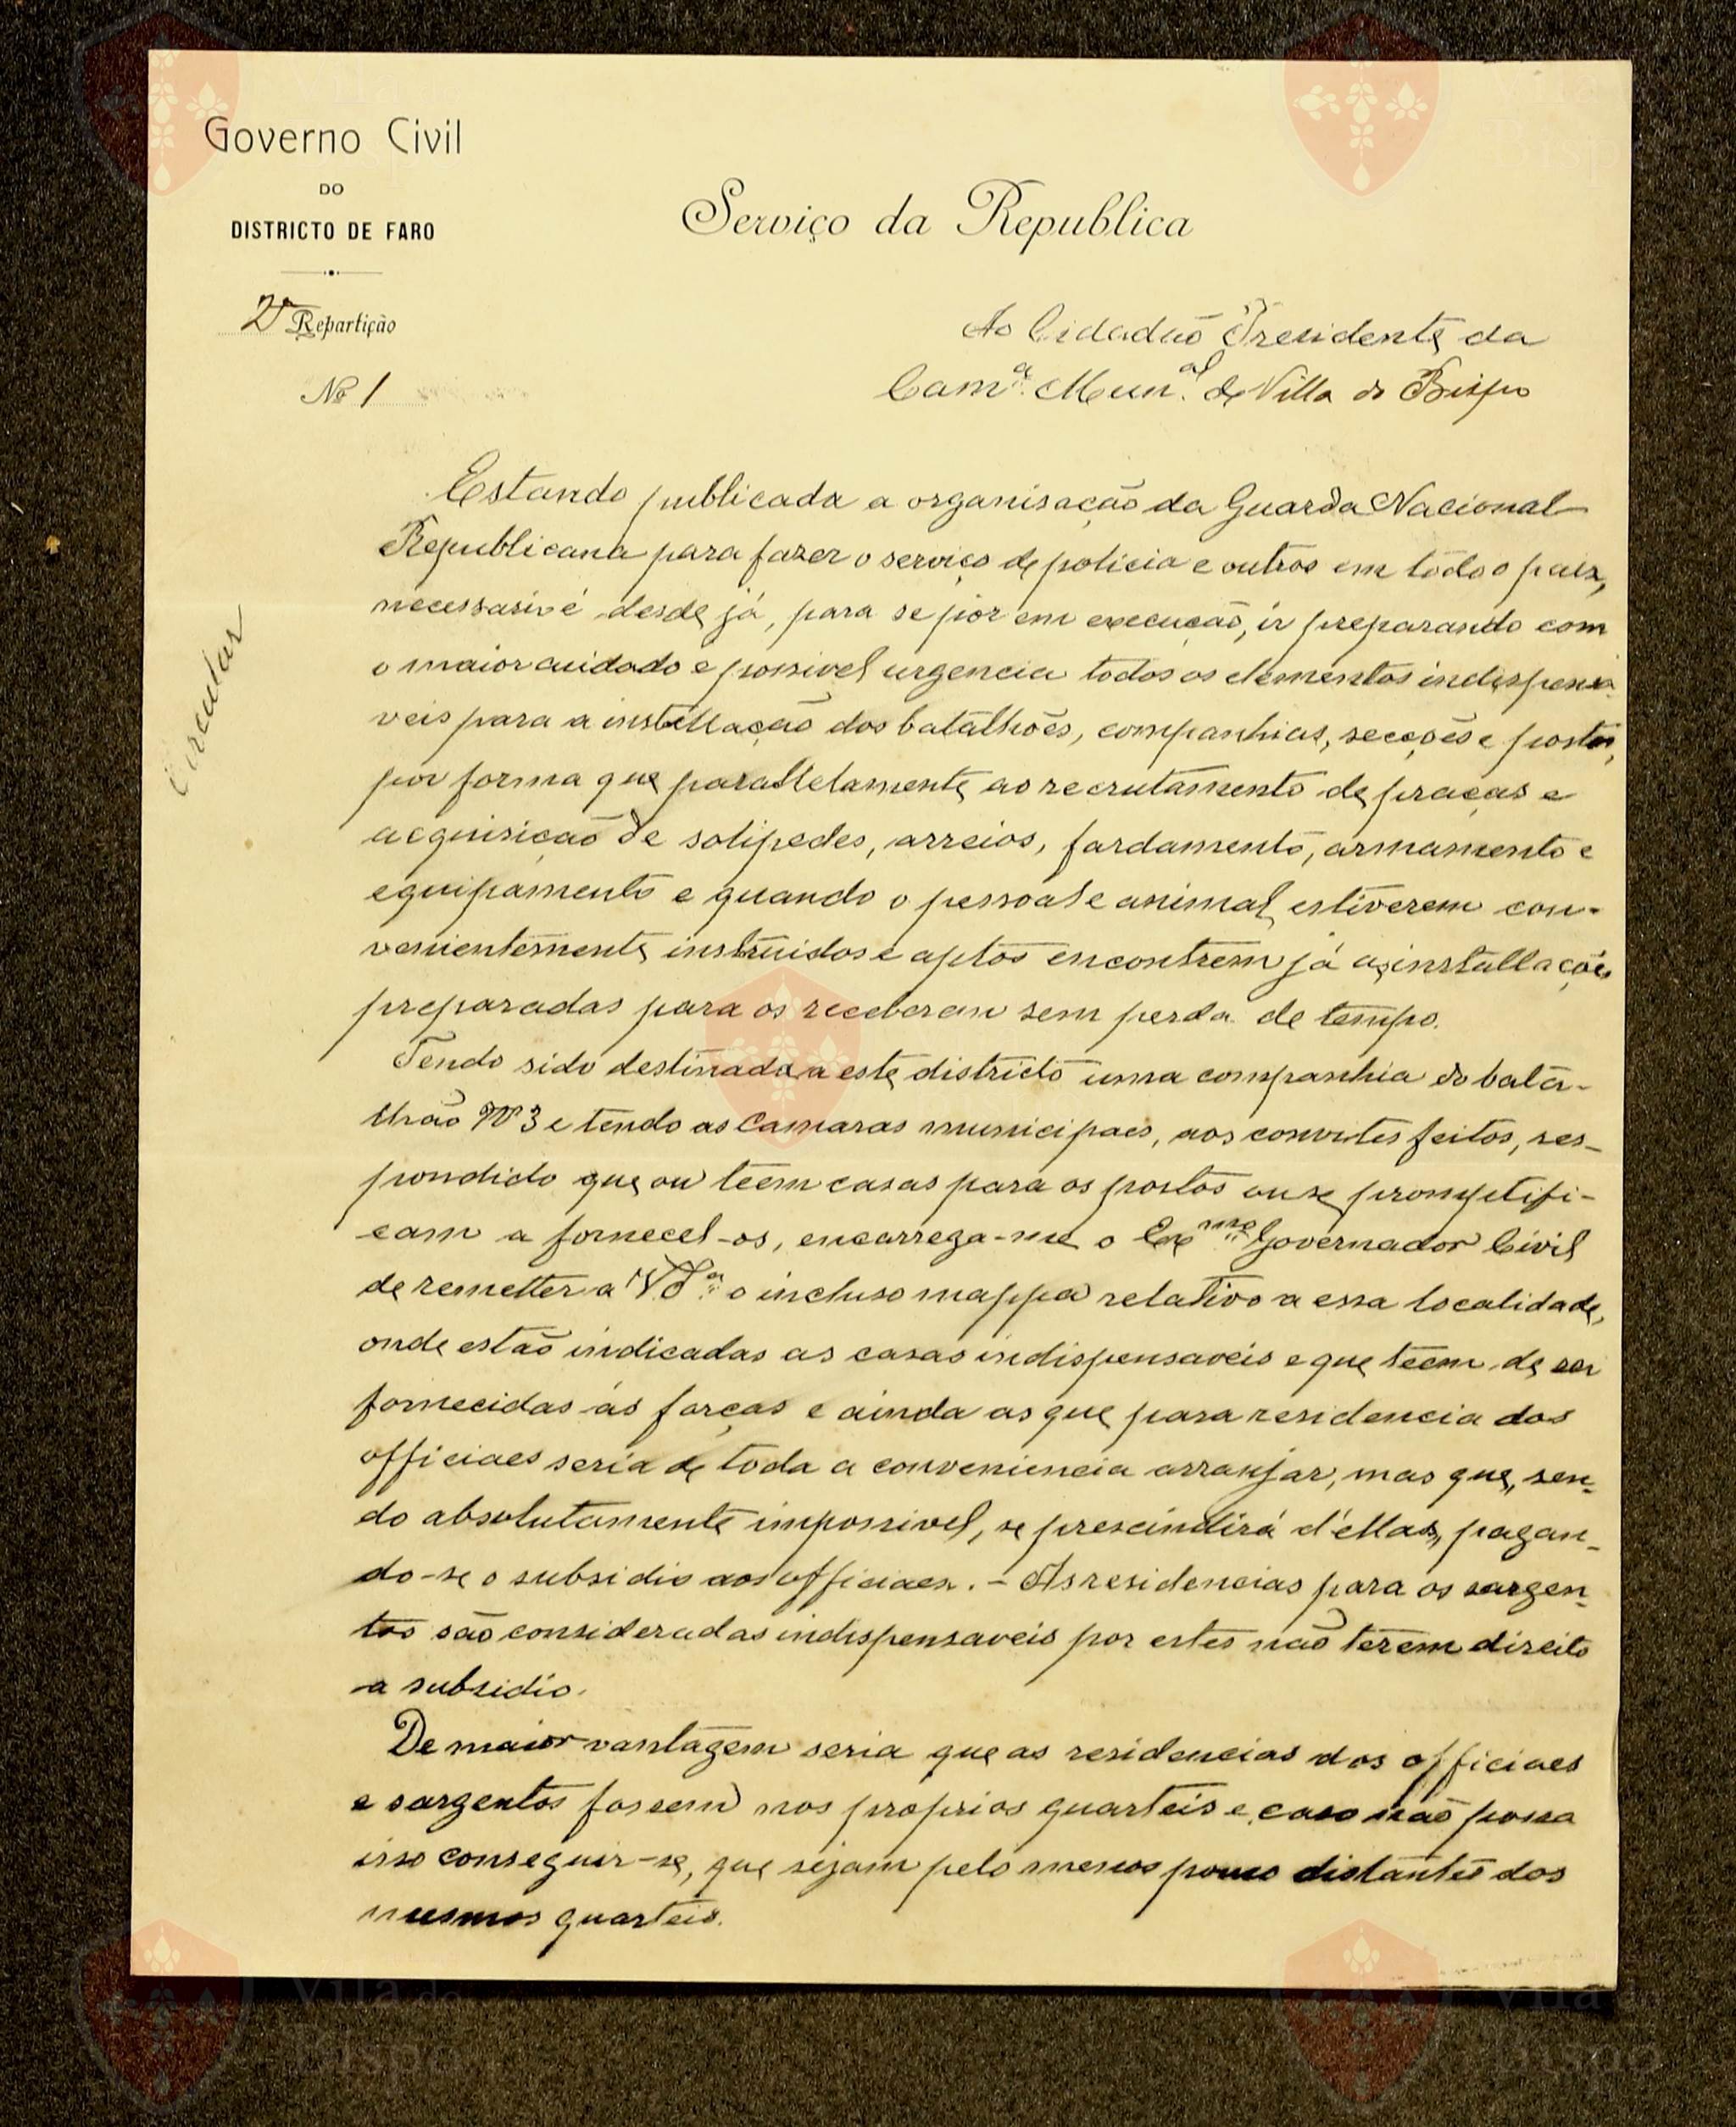 Governo Civil
DO
DISTRICTO DE FARO
2ª Repartição
Nº 1
Serviço da Republica
Ao Cidadão Presidente da
Camª. Munal. de Villa do Bispo
Circular
Estando publicada a organisação da Guarda Nacional
Republicana para fazer o serviço de policia e outros em todo o paiz,
necessario é desde já, para se pôr em execução, ir preparando com
o maior cuidado e possivel urgencia todos os elementos indispensa-
veis para a installação dos batalhões, companhias, secções e postos,
por forma que parallelamente ao recrutamento de praças e
acquisição de solipedes, arreios, fardamento, armamento e
equipamento e quando o pessoal e animal estiverem con-
venientemente instruidos e aptos encontrem já as installações
preparadas para os receberem sem perda de tempo.
Tendo sido destinada a este districto uma companhia do bata-
lhão Nº 3 e tendo as camaras municipaes, aos convites feitos, res-
pondido que ou teem casas para os postos ou se promptifi-
cam a fornecel-os, encarrega-me o Exmo Governador Civil
de remetter a V. Sª o incluso mappa relativo a essa localidade,
onde estão indicadas as casas indispensaveis e que teem de ser
fornecidas ás forças e ainda as que para residencia dos
officiaes seria de toda a conveniencia arranjar, mas que, sen-
do absolutamente impossivel, se prescindirá d'ellas, pagan-
do-se o subsidio aos officiaes. - As residencias para os sargen-
tos são consideradas indispensaveis por estes não terem direito
a subsidio.
De maior vantagem seria que as residencias dos officiaes
e sargentos fossem nos proprios quarteis e, caso não possa
isso conseguir-se, que sejam pelo menos pouco distantes dos
mesmos quarteis.
Vila do
Bispo